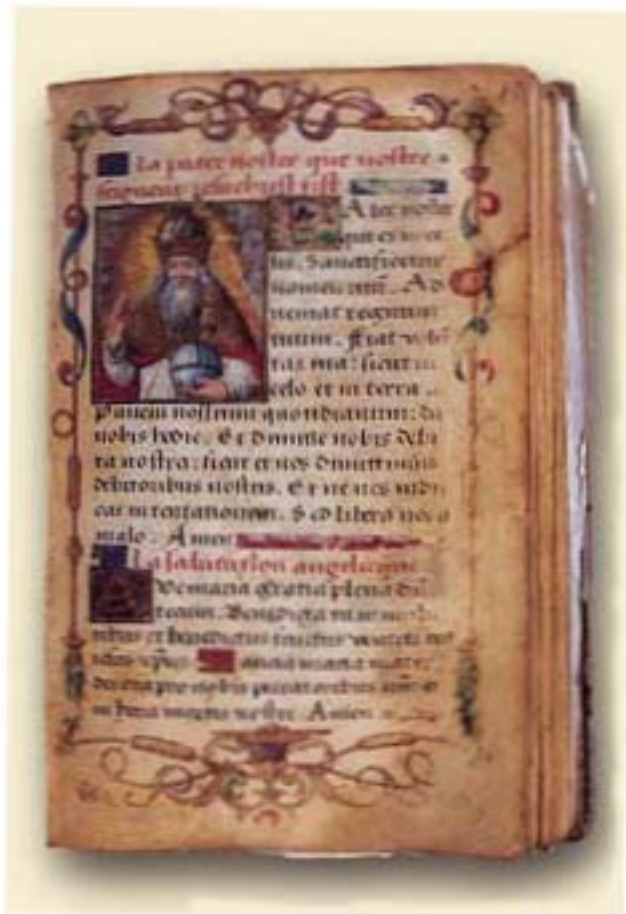 La pater nostre que nostre
seigneur jesuchrist fist
Ater noster
qui es in ce
lis. Sanctificetur
nomen tuu. Ad
veniat regnum
tuum. fiat volu
tas tua: sicut in
celo et in terra
Panem nostrum quotidianum: da
nobis hodie. Et dimitte nobis debi
ta nostra: sicut et nos dimittimus
debitoribus nostris. Et ne nos indu
cas in tentationem. Sed libera nos a
malo. Amen
La salutation angelicque
Ve maria Gratia plena
tecum. Benedicta tu in muli
ribus et benedictus fructus ventris
ancta maria mater
dei ora pro nobis peccatoribus
in hora mortis nostre. Amen